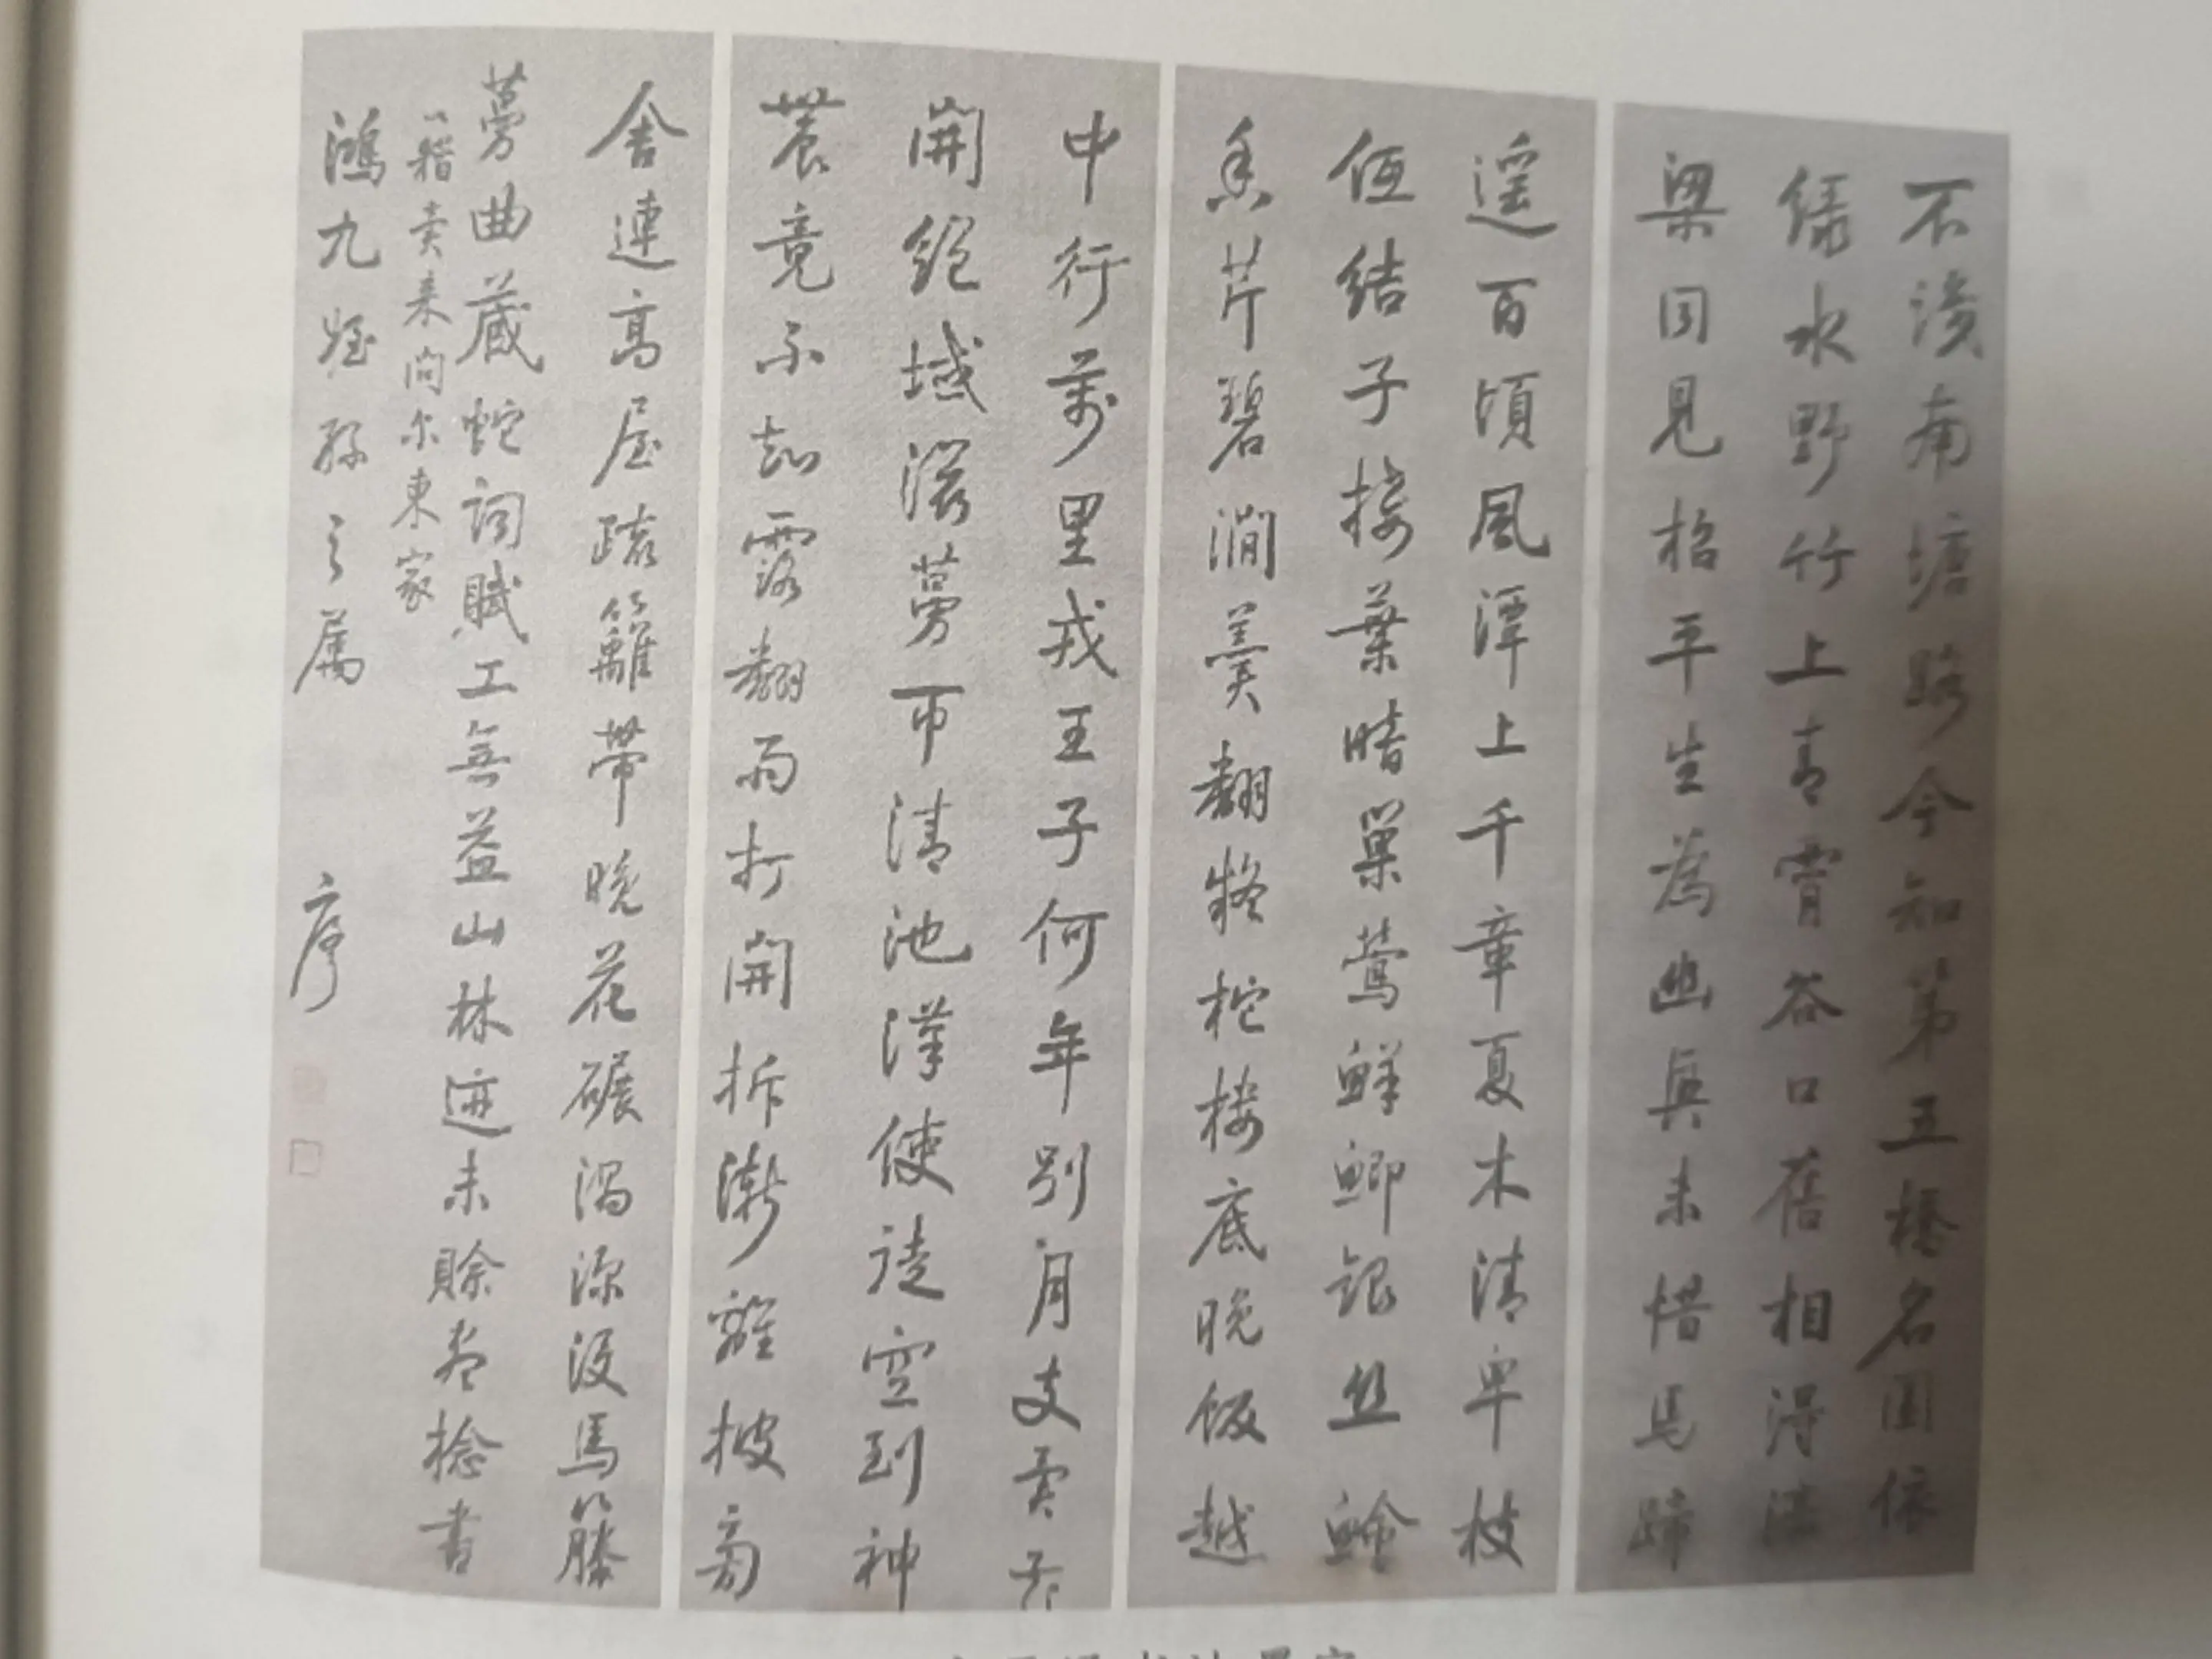 不識南塘路今知第五橋名園依
綠水野竹上青霄谷口舊相得濠
梁同見招平生為幽興未惜馬蹄
遥百頃風潭上千章夏木清卑枝
低結子接葉暗巢鶯鮮鯽銀丝鱠
香芹碧澗羹翻疑柁樓底晚飯越
中行萬里戎王子何年別月支異花
開絕域滋蔓匝清池漢使徒空到神
農竟不知露翻雨打開拆漸離披旁
舍連高屋疏籬帶晚花碾渦深没馬籐
蔓曲藏蛇詞賦工無益山林迹未賒盡捻書
籍卖来问尔東家
鴻九姪孫之属
序